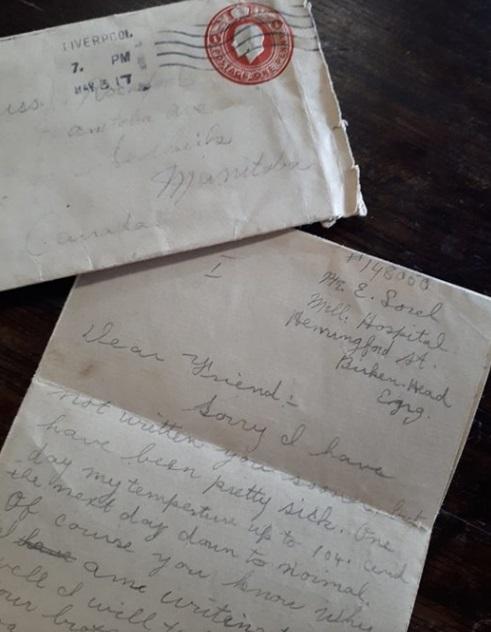 LIVERPOOL.
7. PM
MAR 3 17
POSTAGE ONE PENNY
Miss.
Manitoba
Canada
I
#148050
Mr. E. Sorel
Mill. Hospital
Hemingford St.
Birken-Head
Eng.
Dear Friend:-
Sorry I have
not written you sooner, but
have been pretty sick. One
day my temperture up to 104. and
the next day down to normal.
Of course you know why
I have ame writing
well I will
your